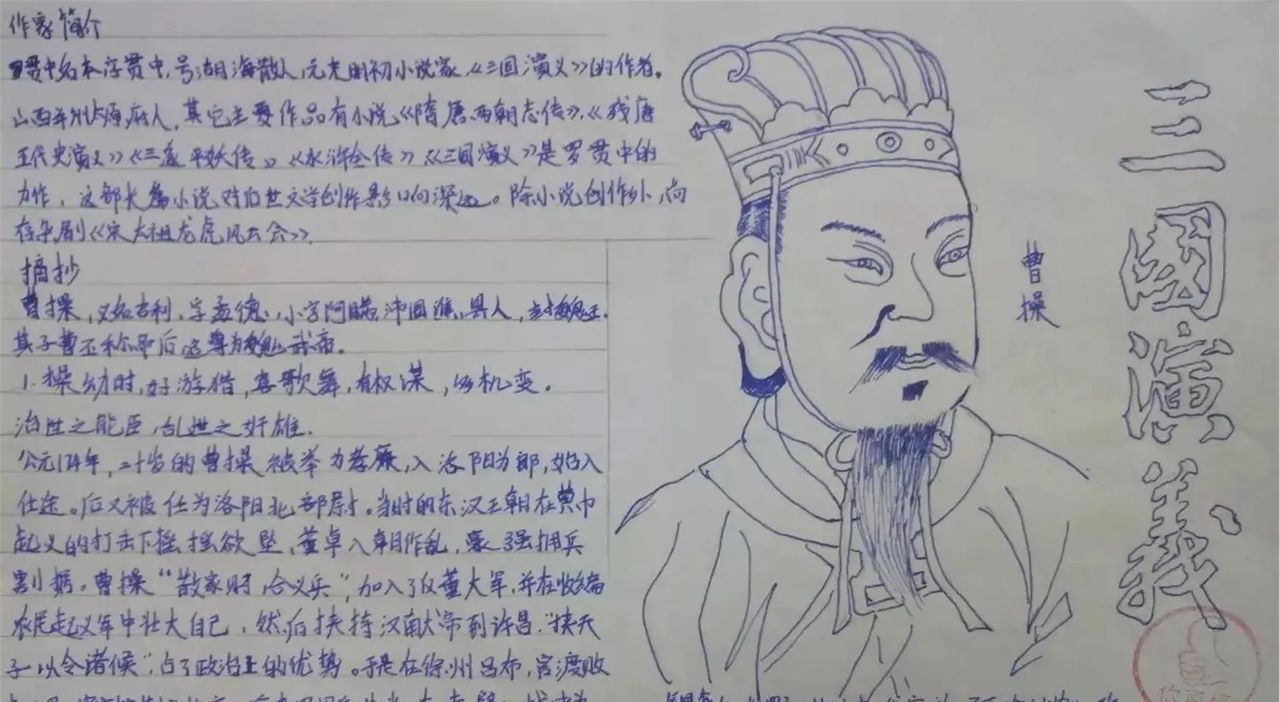 作家简介
罗贯中名本字贯中,号湖海散人,元末明初小说家《三国演义》的作者。
山西并州太原府人,其它主要作品有小说《隋唐两朝志传》,《残唐
五代史演义》《三遂平妖传》《水浒全传》《三国演义》是罗贯中的
力作,这部长篇小说对后世文学创作影响深远。除小说创作外,尚
存杂剧《宋太祖龙虎风云会》。
摘抄
曹操,又名吉利,字孟德,小字阿瞒,沛国谯县人,封魏王。
其子曹丕称帝后追尊为魏武帝。
1. 操幼时,好游猎,喜歌舞,有权谋,多机变。
治世之能臣,乱世之奸雄.
公元174年,二十岁的曹操被举为孝廉,入洛阳为郎,始入
仕途。后又被任为洛阳北部尉。当时的东汉王朝在黄巾
起义的打击下摇摇欲坠,董卓入朝作乱,豪强拥兵
割据。曹操“散家财,合义兵”,加入了反董大军,并在收编
农民起义军中壮大自己,然后挟持汉献帝到许昌,“挟天
子以令诸侯”,占了政治上的优势。于是在徐州吕布,官渡败
曹操
三國演義